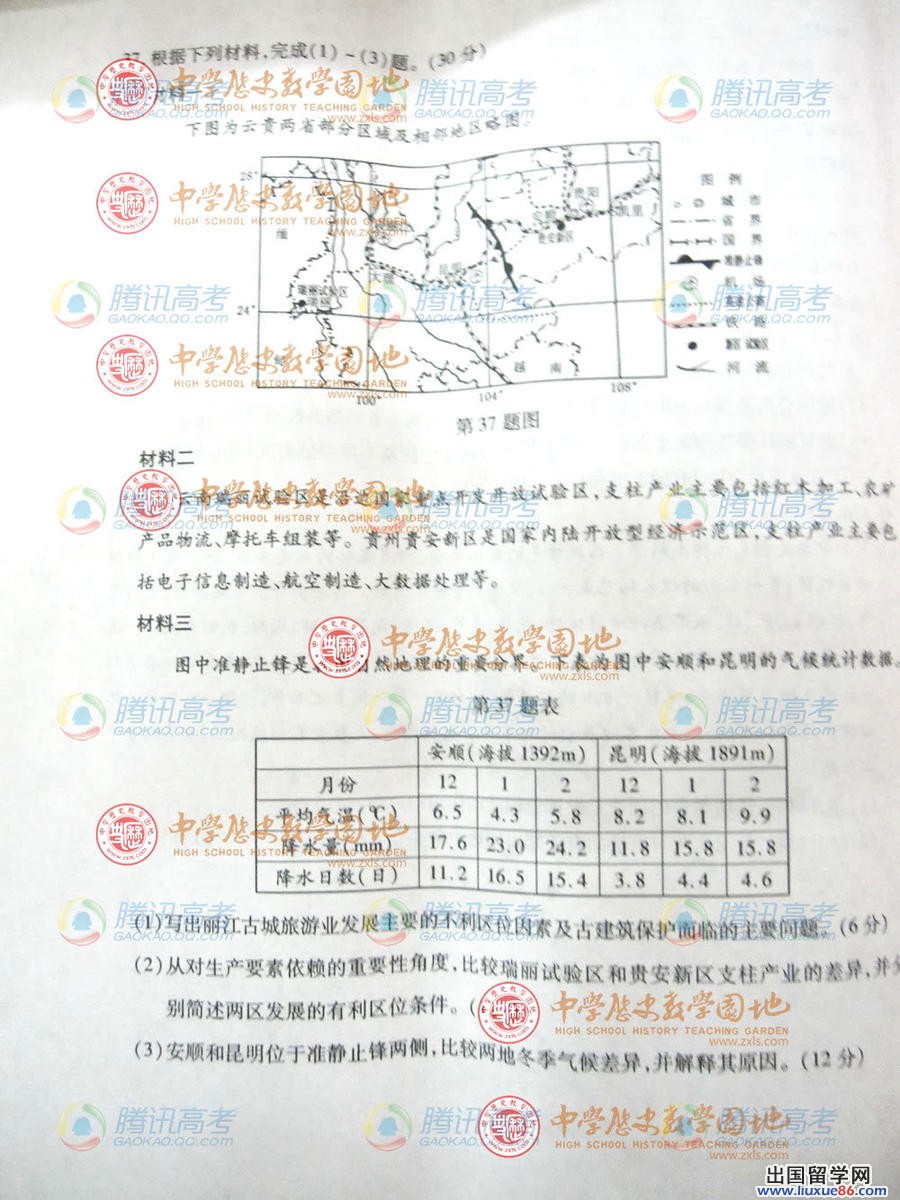 37. 根据下列材料,完成(1)~(3)题。(30分)
材料一
下图为云贵两省部分区域及相邻地区略图。
28°
24°
100°
104°
108°
缅
瑞丽试验区
瑞丽
大理
昆明
安顺
贵阳
贵安新区
凯里
越 南
图 例
城 市
省 界
国 界
准静止锋
机 场
高速公路
铁 路
河 流
第37题图
材料二
云南瑞丽试验区是沿边国家重点开发开放试验区,支柱产业主要包括红木加工、农矿
产品物流、摩托车组装等。贵州贵安新区是国家内陆开放型经济示范区,支柱产业主要包
括电子信息制造、航空制造、大数据处理等。
材料三
图中准静止锋是 自然地理的重要分界 表为图中安顺和昆明的气候统计数据。
第37题表
安顺(海拔1392m) 昆明(海拔1891m)
月份 12 1 2 12 1 2
平均气温(℃) 6.5 4.3 5.8 8.2 8.1 9.9
降水量(mm) 17.6 23.0 24.2 11.8 15.8 15.8
降水日数(日) 11.2 16.5 15.4 3.8 4.4 4.6
(1)写出丽江古城旅游业发展主要的不利区位因素及古建筑保护面临的主要问题。(6分)
(2)从对生产要素依赖的重要性角度,比较瑞丽试验区和贵安新区支柱产业的差异,并分
别简述两区发展的有利区位条件。(
(3)安顺和昆明位于准静止锋两侧,比较两地冬季气候差异,并解释其原因。(12分)
中学历史教学园地
HIGH SCHOOL HISTORY TEACHING GARDEN
www.zxls.com
腾讯高考
GAOKAO.QQ.COM
出国留学网
www.liuxue86.com